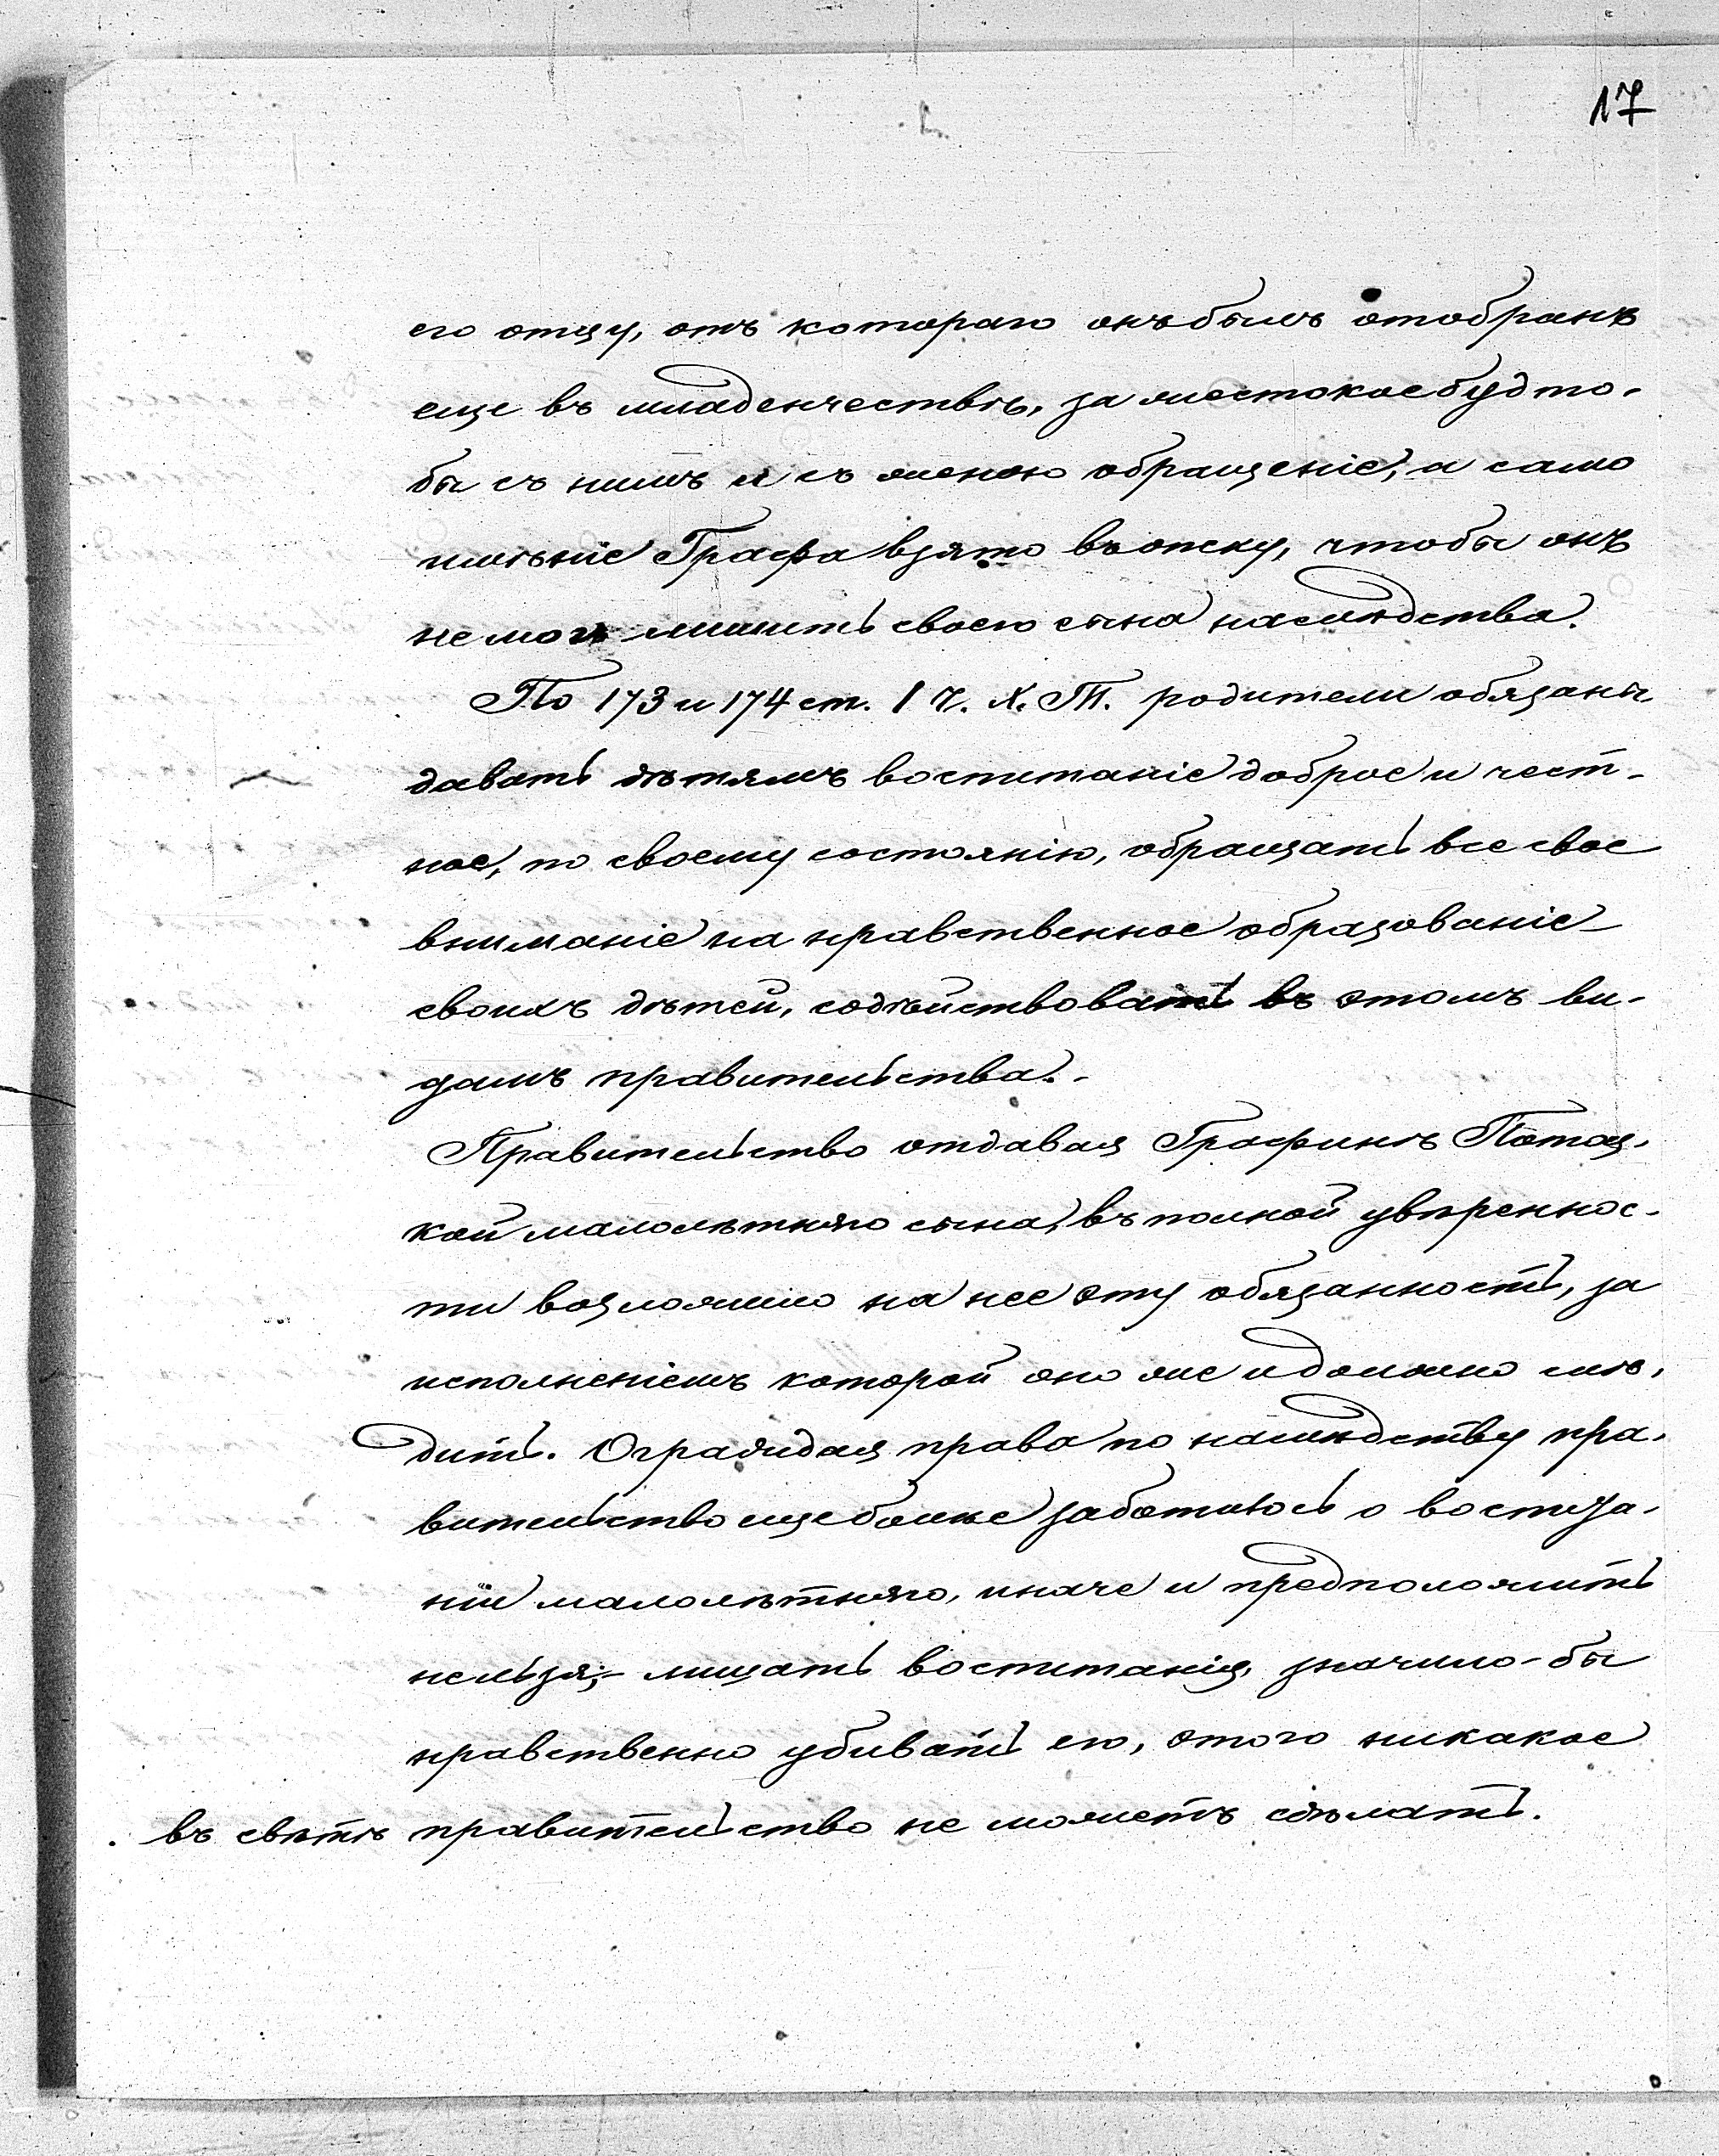 17
его отцу, отъ котораго онъ былъ отобранъ
еще въ младенчествѣ, за жестокое будто-
бы съ нимъ и съ женою обращеніе, а само
имѣніе Графа взято въ опеку, чтобы онъ
не могъ лишить своего сына наслѣдства.
По 173 и 174 ст. 1 ч. X. Т. родители обязаны
давать дѣтямъ воспитаніе доброе и чест-
ное, по своему состоянію, обращать все свое
вниманіе на нравственное образованіе
своихъ дѣтей, содѣйствовать въ этомъ ви-
дамъ правительства.
Правительство отдавая Графинѣ Потоц-
кой малолѣтняго сына, въ полной увѣреннос-
ти возложило на нее эту обязанность, за
исполненіемъ которой оно же и должно слѣ-
дить. Ограждая права по наслѣдству пра-
вительство еще болѣе заботилось о воспита-
ніи малолѣтняго, иначе и предположить
нельзя,- лишать воспитанія, значило-бы
нравственно убивать его, этого никакое
въ свѣтѣ правительство не можетъ сдѣлать.